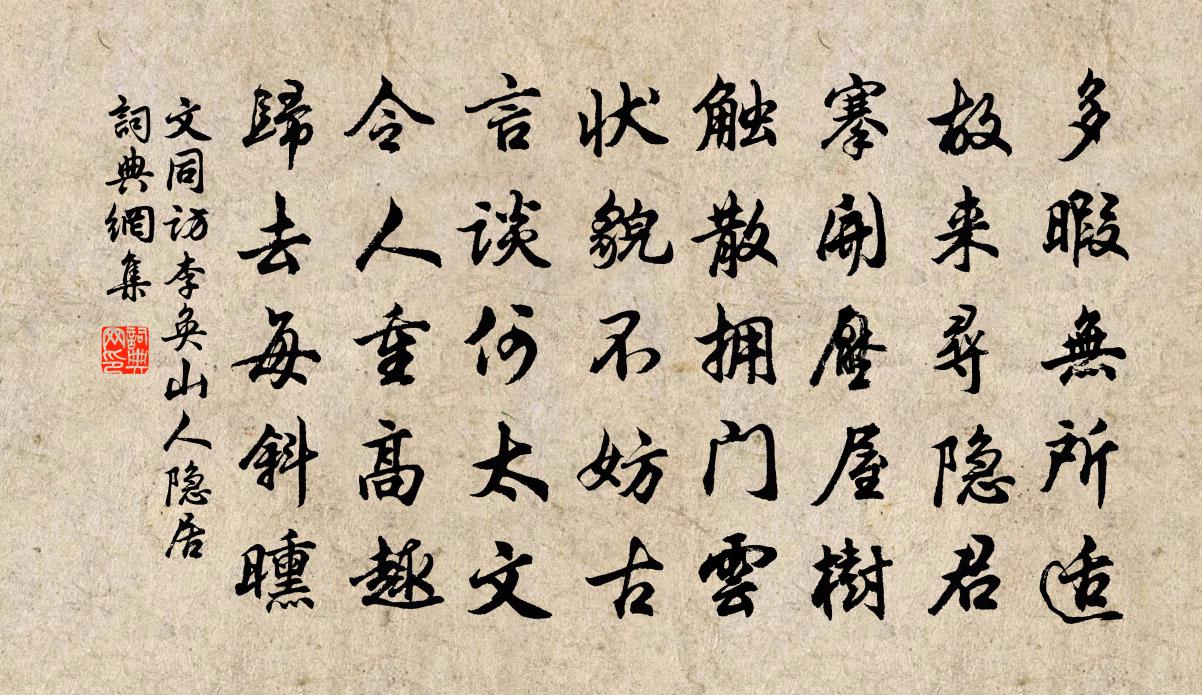 多暇無所适
故来尋隐君
搴開壓屋樹
触散拥门雲
状貌不妨古
言谈何太文
令人重高趣
歸去每斜曛
文同访李奂山人隐居
詞典網集
詞典网印